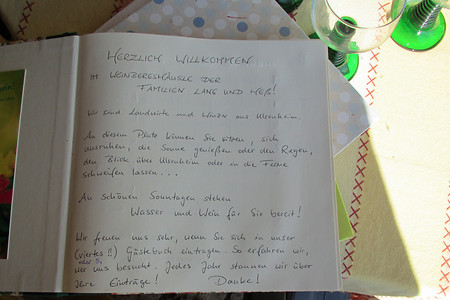 HERZLICH WILLKOMMEN
IM WEINBERGSHÄUSLE DER
FAMILIEN LANG UND HEß!
Wir sind Landwirte und Winzer aus Ulrnheim.
An diesem Platz können Sie sitzen, sich
ausruhen, die Sonne genießen oder den Regen,
den Blick über oder in die Ferne
schweifen lassen...
An schönen Sonntagen stehen
Wasser und Wein für Sie bereit!
Wir freuen uns sehr, wenn Sie sich in unser
(viertes!!) Gästebuch eintragen. So erfahren wir,
wer uns besucht. Jedes Jahr staunen wir über
Ihre Einträge! Danke!